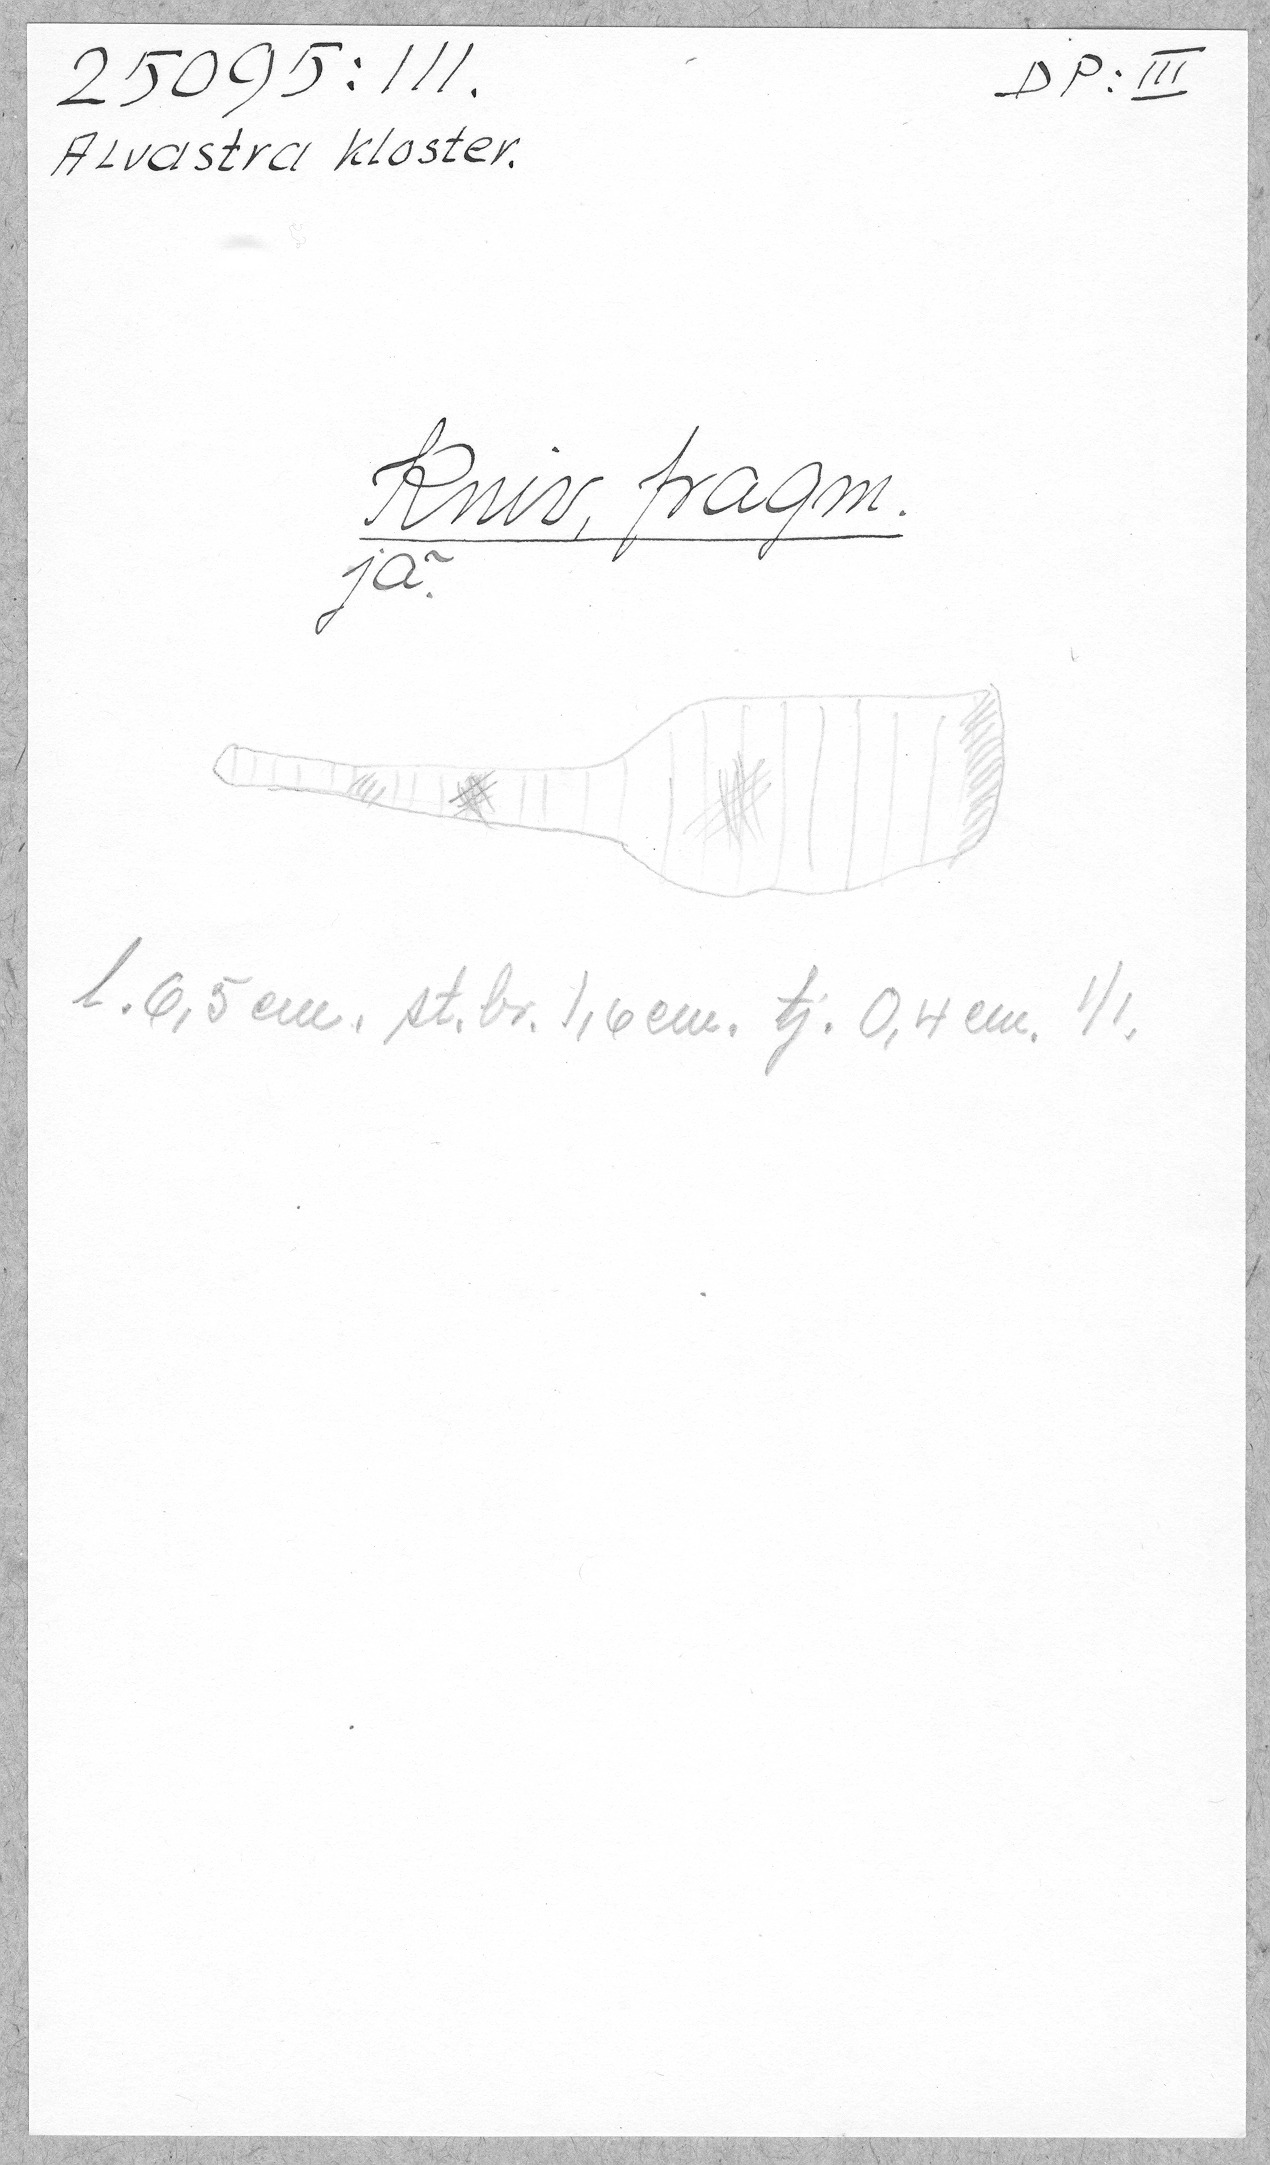 25095:111.
DP: III
Alvastra kloster.
Kniv, fragm.
jä.
l. 6,5 cm. st. br. 1,6 cm. tj. 0,4 cm. 1/1.